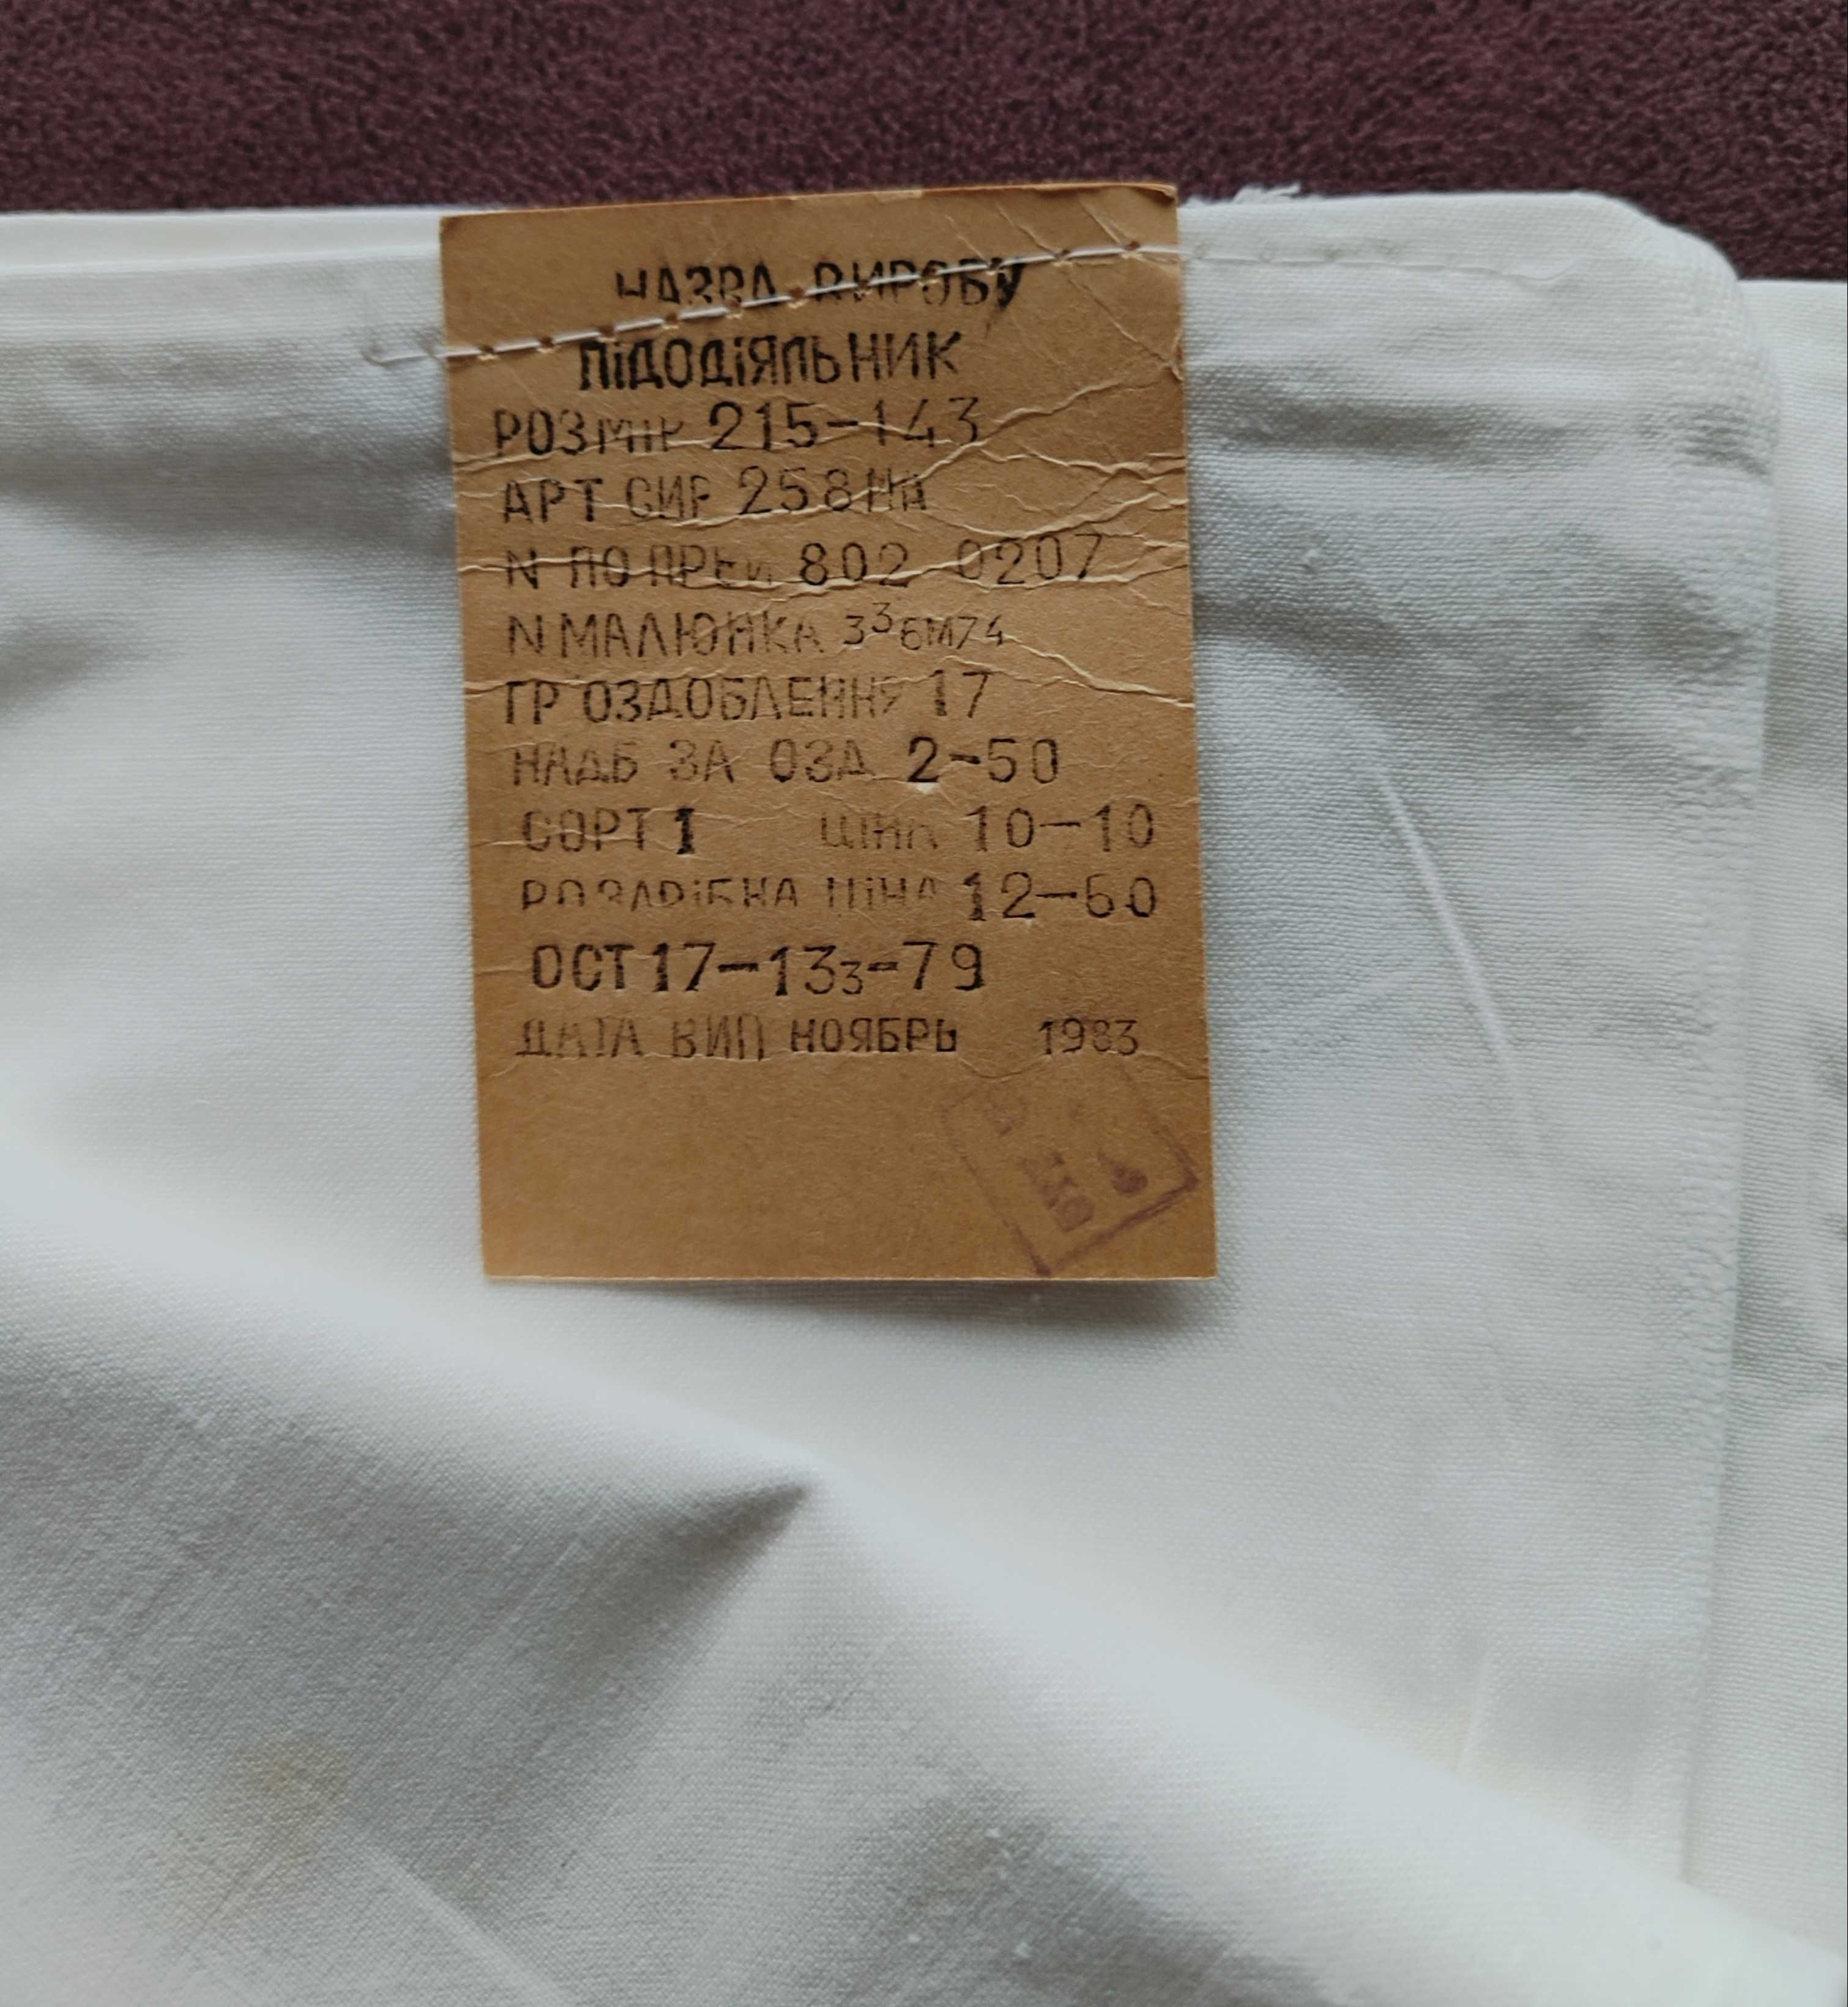 НАЗВА ВИРОБУ
ПІДОДІЯЛЬНИК
РОЗМІР 215-143
АРТ СИР 258НА
N ПО ПРЕЙ 802 0207
N МАЛЮНКА 336М74
ГР ОЗДОБЛЕННЯ 17
НАДБ ЗА ОЗД 2-50
СОРТ 1 ЦІНА 10-10
РОЗДРІБНА ЦІНА 12-60
ОСТ 17-133-79
ДАТА ВИП НОЯБРЬ 1983